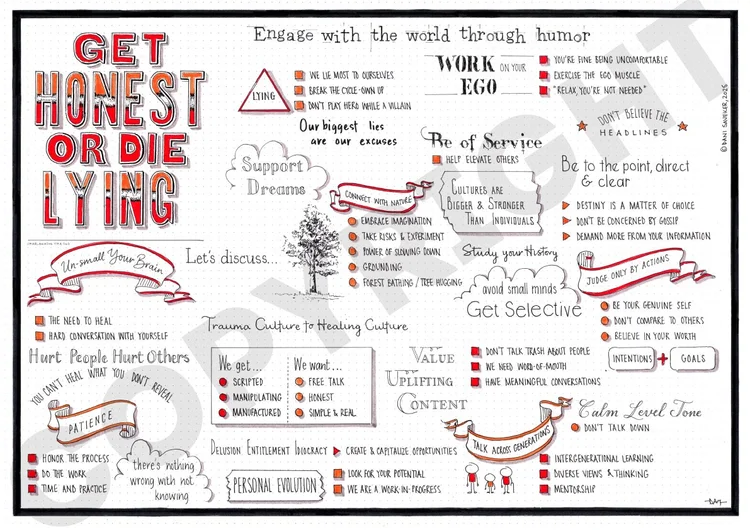 GET
HONEST
OR DIE
LYING
Engage with the world through humor
LYING
WE LIE MOST TO OURSELVES
BREAK THE CYCLE-OWN UP
DON'T PLAY HERO WHILE A VILLAIN
Our biggest lies
are our excuses
WORK ON YOUR
EGO
YOU'RE FINE BEING UNCOMFORTABLE
EXERCISE THE EGO MUSCLE
"RELAX, YOU'RE NOT NEEDED"
DON'T BELIEVE THE
HEADLINES
Support
Dreams
CONNECT WITH NATURE
EMBRACE IMAGINATION
TAKE RISKS & EXPERIMENT
POWER OF SLOWING DOWN
GROUNDING
FOREST BATHING / TREE HUGGING
Be of Service
HELP ELEVATE OTHERS
CULTURES ARE
BIGGER & STRONGER
THAN INDIVIDUALS
Be to the point, direct
& clear
DESTINY IS A MATTER OF CHOICE
DON'T BE CONCERNED BY GOSSIP
DEMAND MORE FROM YOUR INFORMATION
Un-small Your Brain
THE NEED TO HEAL
HARD CONVERSATION WITH YOURSELF
Let's discuss...
Study your History
avoid small minds
Get Selective
JUDGE ONLY BY ACTIONS
BE YOUR GENUINE SELF
DON'T COMPARE TO OTHERS
BELIEVE IN YOUR WORTH
INTENTIONS + GOALS
Hurt People Hurt Others
YOU CAN'T HEAL WHAT YOU DON'T REVEAL
PATIENCE
HONOR THE PROCESS
DO THE WORK
TIME AND PRACTICE
there's nothing
wrong with not
knowing
Trauma Culture to Healing Culture
We get...
SCRIPTED
MANIPULATING
MANUFACTURED
We want...
FREE TALK
HONEST
SIMPLE & REAL
VALUE
UPLIFTING
CONTENT
DON'T TALK TRASH ABOUT PEOPLE
WE NEED WORD-OF-MOUTH
HAVE MEANINGFUL CONVERSATIONS
DELUSION ENTITLEMENT IDIOCRACY
CREATE & CAPITALIZE OPPORTUNITIES
PERSONAL EVOLUTION
LOOK FOR YOUR POTENTIAL
WE ARE A WORK-IN-PROGRESS
TALK ACROSS GENERATIONS
Calm Level Tone
DON'T TALK DOWN
INTERGENERATIONAL LEARNING
DIVERSE VIEWS & THINKING
MENTORSHIP
COPYRIGHT